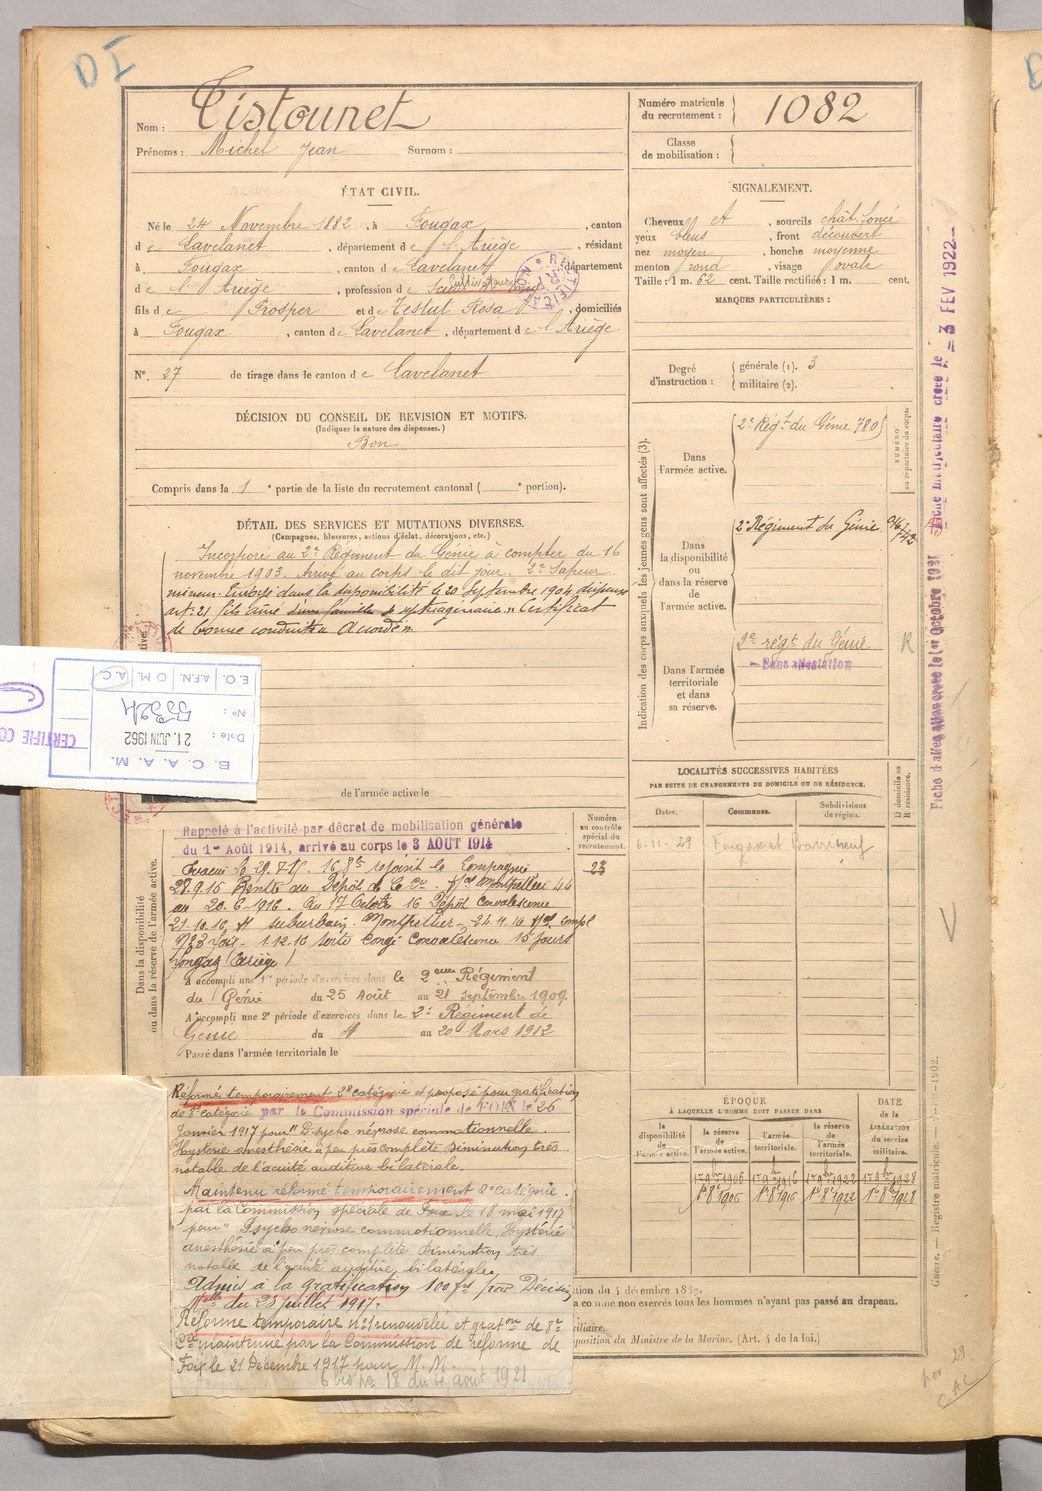 DI
Nom : Tistounet
Prénoms : Michel Jean Surnom :
Numéro matricule du recrutement : 1082
Classe de mobilisation :
ÉTAT CIVIL.
Né le 24 Novembre 1882, à Fougax, canton
de Lavelanet, département de l'Ariège, résidant
à Fougax, canton de Lavelanet, département
de l'Ariège, profession de Cultivateur
fils de Prosper et de Testut Rosa, domiciliés
à Fougax, canton de Lavelanet, département de l'Ariège
N° 27 de tirage dans le canton de Lavelanet
DÉCISION DU CONSEIL DE REVISION ET MOTIFS.
(Indiquer la nature des dispenses.)
Bon
Compris dans la 1e partie de la liste du recrutement cantonal ( e portion).
SIGNALEMENT.
Cheveux et, sourcils chât. foncé
yeux bleus, front découvert
nez moyen, bouche moyenne
menton rond, visage ovale
Taille : 1 m. 62 cent. Taille rectifiée : 1 m. cent.
MARQUES PARTICULIÈRES :
Degré d'instruction : générale (1). 3
militaire (2).
DÉTAIL DES SERVICES ET MUTATIONS DIVERSES.
(Campagnes, blessures, actions d'éclat, décorations, etc.)
Incorporé au 2e Régiment du Génie à compter du 16
novembre 1903. Arrivé au corps le dit jour. 2e Sapeur
mineur. Envoyé dans la disponibilité le 20 Septembre 1904 dispense
art. 21 fils aîné septuagénaire. Certificat
de bonne conduite Accordé.
E.O. A.F.N. O.M. A.C
N° : 5324
Date : 21 JUIN 1962
B. C. A. A. M.
CERTIFIE CO
de l'armée active le
Indication des corps auxquels les jeunes gens sont affectés (3).
NUMÉRO au répertoire du corps.
Dans l'armée active.
2e Régt du Génie 780
Dans la disponibilité ou dans la réserve de l'armée active.
2e Régiment du Génie
Dans l'armée territoriale et dans sa réserve.
2e régt du Génie R
Sans affectation
LOCALITÉS SUCCESSIVES HABITÉES
PAR SUITE DE CHANGEMENTS DE DOMICILE OU DE RÉSIDENCE.
Dates. Communes. Subdivisions de région. D domicile ou R résidence.
6-11-29 Fougax et Barrineuf
Dans la disponibilité ou dans la réserve de l'armée active.
Numéro au contrôle spécial du recrutement.
23
Rappelé à l'activité par décret de mobilisation générale
du 1er Août 1914, arrivé au corps le 3 AOUT 1914
Évacué le 29.7.15. 16.8bre rejoint la Compagnie
28.9.15 Rentré au Dépôt de la Cie. Hal Montpellier 44
au 20.6.1916. Au 17 Octobre 16 Dépôt Convalescence
21.10.16 H suburbain Montpellier - 24.11.16 Hal Compl
9/23 Foix - 1.12.16 sorti Congé Convalescence 15 jours
Fougax (Ariège)
A accompli une 1re période d'exercices dans le 2ème Régiment
du Génie du 25 Août au 21 septembre 1909.
A accompli une 2e période d'exercices dans le 2e Régiment de
Génie du 4 au 20 Mars 1912
Passé dans l'armée territoriale le
Réformé temporairement 2e catégorie et proposé pour gratification
de 8e catégorie par la Commission spéciale de FOIX le 26
Janvier 1917 pour "Psycho névrose commotionnelle.
Hystérie anesthésie à peu près complète diminution très
notable de l'acuité auditive bilatérale.
Maintenu réformé temporairement 2e catégorie.
par la Commission spéciale de Foix le 18 mai 1917
pour "Psycho névrose commotionnelle, Hystérie
anesthésie à peu près complète diminution très
notable de l'acuité auditive bilatérale
Admis à la gratification 100 frs par Décision
Mlle du 25 juillet 1917.
Réforme temporaire n°1 renouvelée et gratон de 8e
Cie maintenue par la Commission de réforme de
Foix le 21 Décembre 1917 pour M. M.
18 du 4 août 1921
ÉPOQUE
À LAQUELLE L'HOMME DOIT PASSER DANS
la disponibilité de l'armée active. la réserve de l'armée active. l'armée territoriale. la réserve de l'armée territoriale. DATE de la LIBÉRATION du service militaire.
1er 9bre 1906 1er 9bre 1916 1er 9bre 1922 1er 9bre 1928
1er 8bre 1906 1er 8bre 1916 1er 8bre 1922 1er 8bre 1928
tion du 4 décembre 1889.
a comme non exercés tous les hommes n'ayant pas passé au drapeau.
iciliaire.
position du Ministre de la Marine. (Art. 4 de la loi.)
Guerre. — Registre matricule. — 1902.
Fiche matriculaire créée le - 3 FEV 1922
Fiche d'affectation créée le 1er Octobre 1931